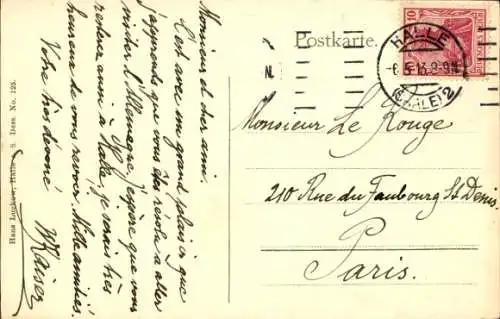 Monsieur et cher ami.
C'est avec un grand plaisir que
j'apprends que vous êtes résolu à aller
visiter l'Allemagne. J'espère que vous
resterez aussi à Halle, je serais très
heureux de vous revoir. Mille amitiés.
Votre très dévoué
W Kaiser
Hans Luckow, Halle a. S. Dess. No. 125.
Postkarte.
HALLE
-6.5.13.8-9N.
(SAALE) 2
10
Monsieur Le Rouge
210 Rue du Faubourg St Denis.
Paris.